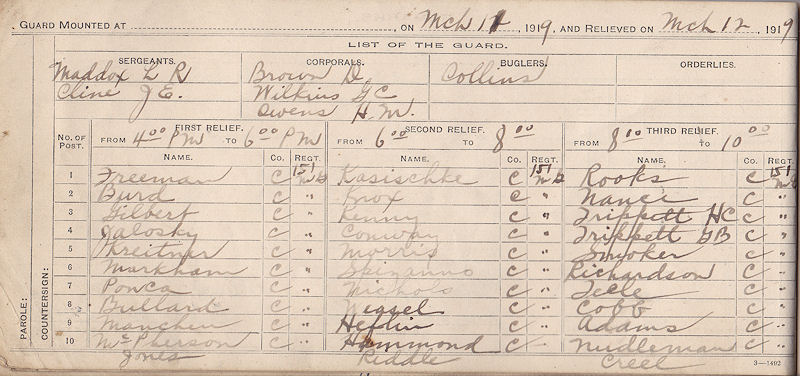 GUARD MOUNTED AT ..., ON Mch 11, 1919, AND RELIEVED ON Mch 12, 1919
LIST OF THE GUARD.
SERGEANTS. CORPORALS. BUGLERS. ORDERLIES.
Maddox L R Brown D. Collins
Cline J E. Wilkins G C
Owens H. M.
No. OF POST. FIRST RELIEF. SECOND RELIEF. THIRD RELIEF.
FROM 4 00 PM TO 6 00 PM FROM 6 00 TO 8 00 FROM 8 00 TO 10 00
NAME. Co. REGT. NAME. Co. REGT. NAME. Co. REGT.
1 Freeman C 151 MG Kasischke C 151 MG Rooks C 151 MG
2 Burd C " Knox C " Nance C "
3 Gilbert C " Kenny C " Trippett HC C "
4 Jalosky C " Conway C " Trippett GB C "
5 Kreitner C " Morris C " Smoker C "
6 Markham C " C " Richardson C "
7 Ponca C " Nichols C " C "
8 Bullard C " Wessel C " Cobb C "
9 C " Heflin C " Adams C "
10 McPherson C " Hammond C " Nudleman C "
Jones Riddle Creel
PAROLE:
COUNTERSIGN:
3—1492